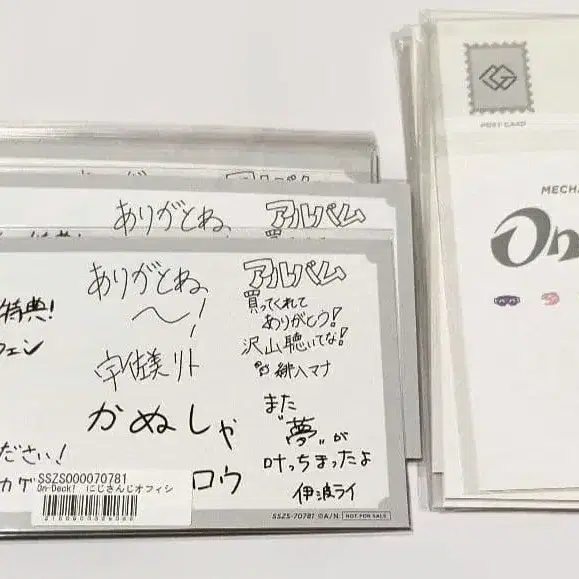 ありがとね
アルバム
特典!
フェン
ありがとね
〜!
宇佐美リト
かぬしゃ
ロウ
アルバム
買ってくれて
ありがとう!
沢山聴いてな!
緋八マナ
また
"夢"が
叶っちまったよ
伊波ライ
ださい!
カゲ
SSZS000070781
On-Deck! にじさんじオフィシ
SSZS-70781 ©A/N. NOT FOR SALE
POST CARD
MECHA
On